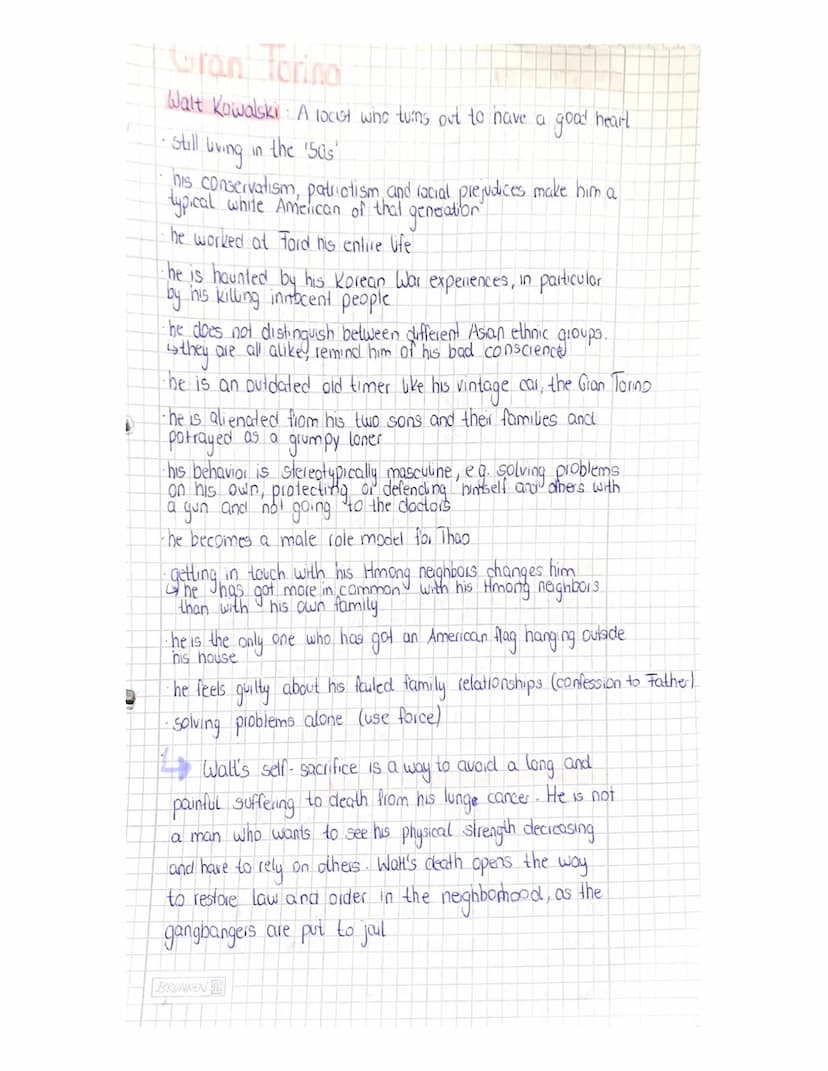 Gran Torino
Walt Kowalski: A racist who turns out to have a good heart
· still living in the '50s'
· his conservatism, patriotism and racial prejudices make him a
typical white American of that generation
· he worked at Ford his entire life
· he is haunted by his Korean War experiences, in particular
by his killing innocent people
· he does not distinguish between different Asian ethnic groups.
↳ they are all alike, remind him of his bad conscience
· he is an outdated old timer like his vintage car, the Gran Torino
· he is alienated from his two sons and their families and
potrayed as a grumpy loner
· his behavior is stereotypically masculine, e.g. solving problems
on his own, protecting or defending himself and others with
a gun and not going to the doctors
· he becomes a male role model for Thao
· getting in touch with his Hmong neighbors changes him
↳ he has got more in common with his Hmong neighbors
than with his own family
· he is the only one who has got an American flag hanging outside
his house
· he feels guilty about his failed family relationships (confession to Father)
· solving problems alone (use force)
↳ Walt's self-sacrifice is a way to avoid a long and
painful suffering to death from his lunge cancer. He is not
a man who wants to see his physical strength decreasing
and have to rely on others. Walt's death opens the way
to restore law and order in the neighborhood, as the
gangbangers are put to jail
BRUNNEN